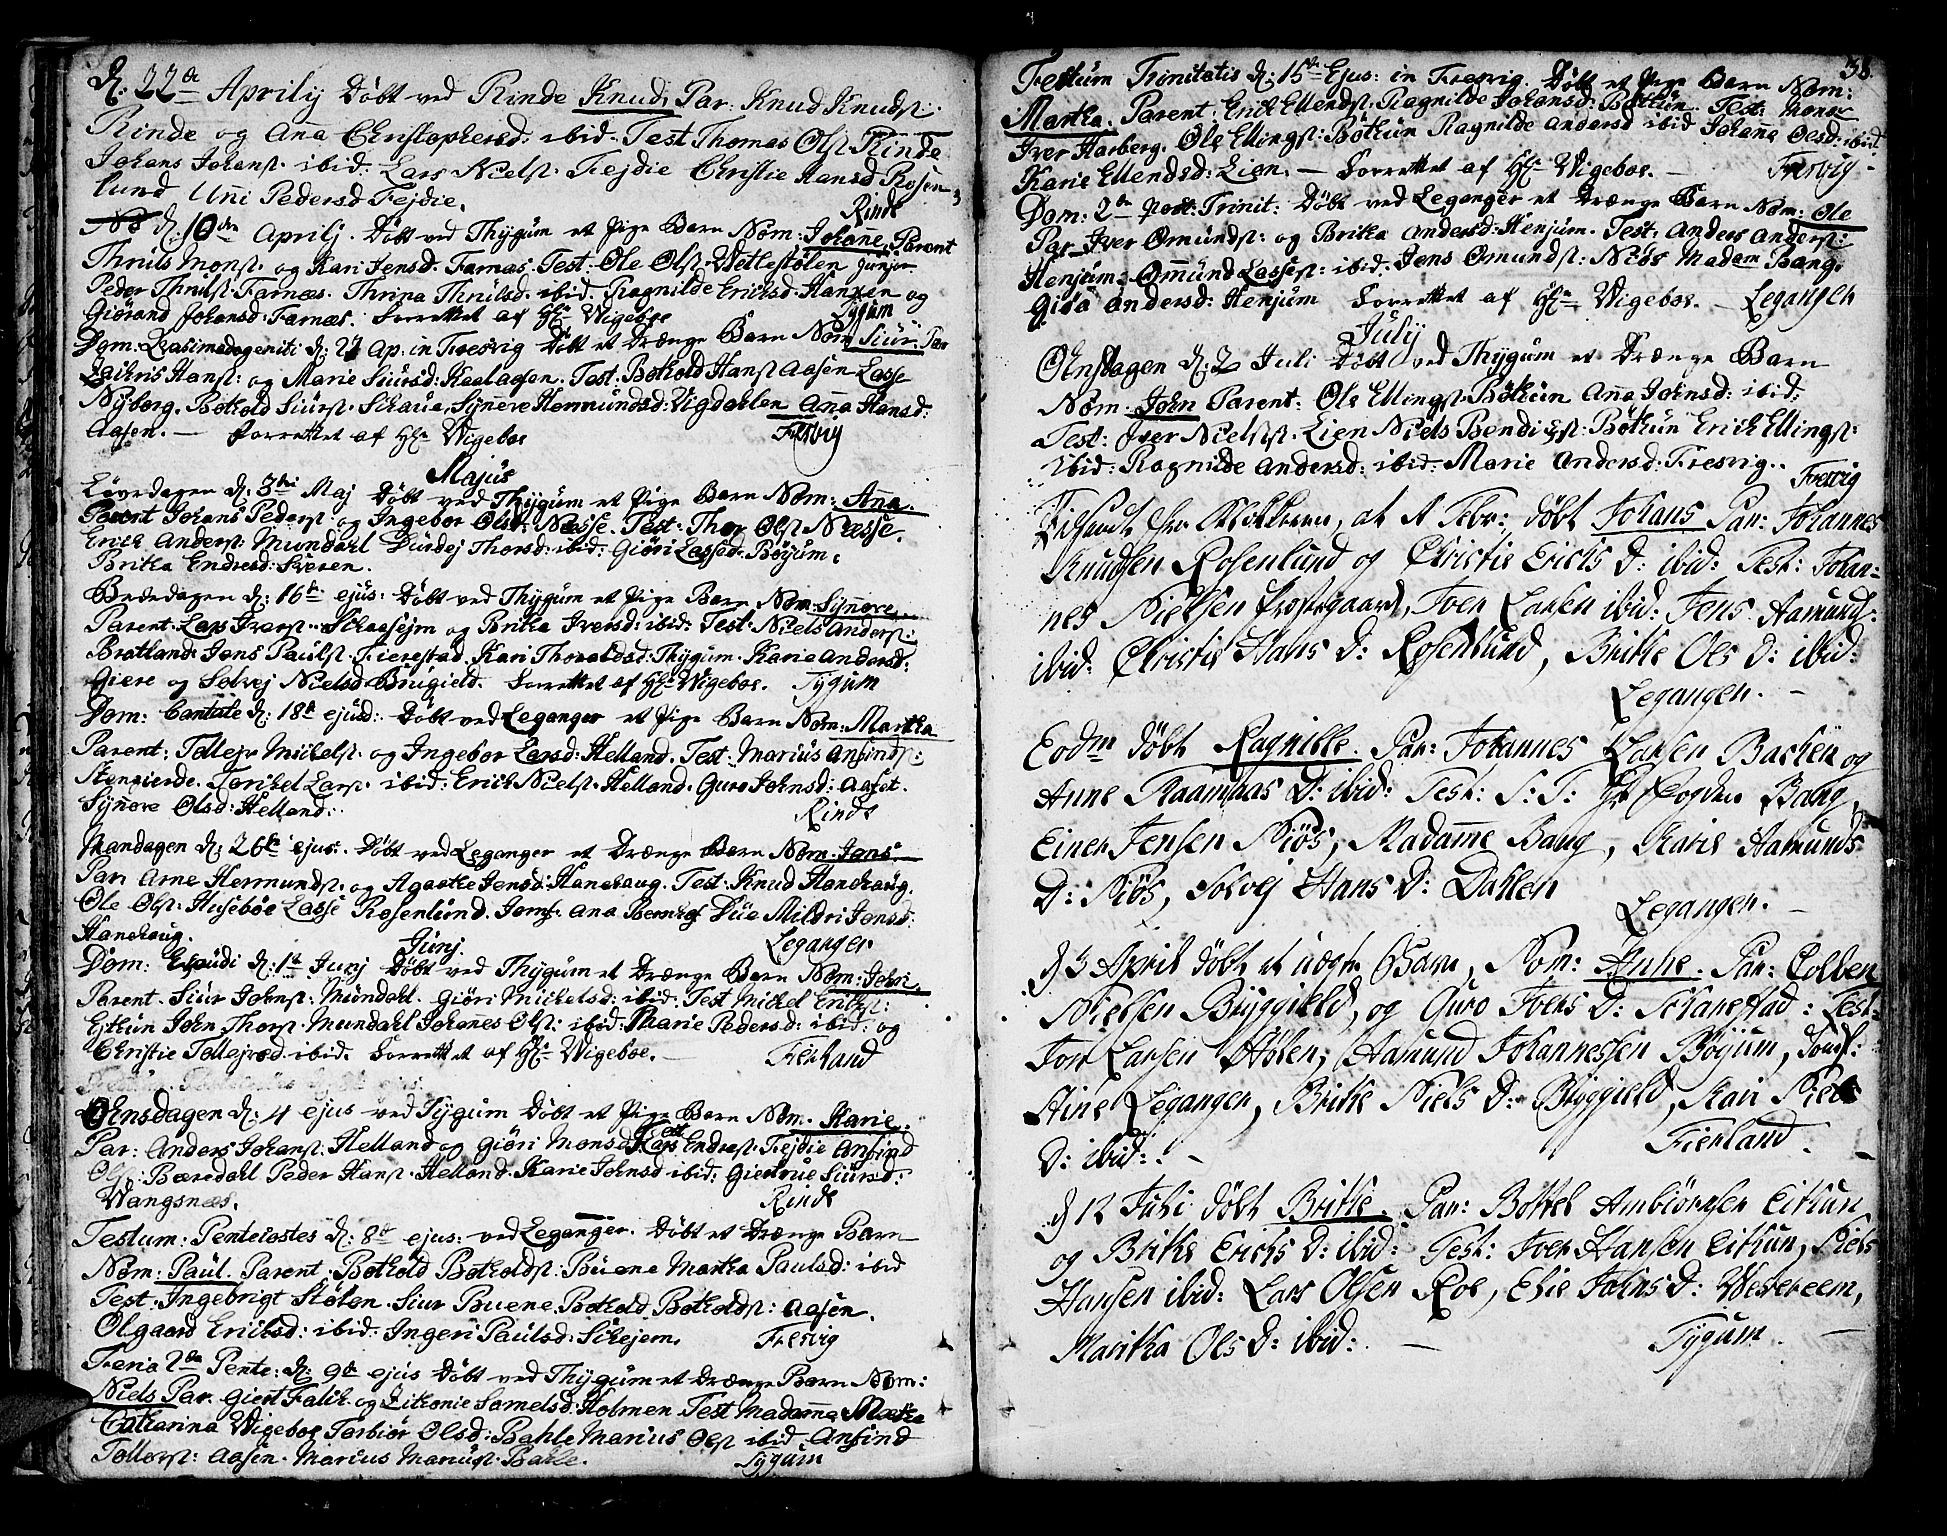 d: 22de Aprily Döbt ved Rinde Knud, Par: Knud Knudst:
Rinde og Aña Christophersd: ibid: Test Thomas Olst Rinde
Johans Johanst ibid: Lars Nielst Fejdie Christie Hansd Rosen-
lund Uñi Pedersd Fejdie.
Rinde
d: 10de Aprilj. Döbt ved Thygum et Pige Barn Nom: Johañe. Parent
Thruls Monst. og Kari Jensd. Farnæs. Test: Ole Olst Wetlestølen Junior
Peder Thrulst Farnæs. Thrina Thrulsd ibid. Ragnilde Ericksd Hanzen og
Giörand Johansd: Farnæs. Forrettet af Hr Wigeboe
Tygum
Dom: Qvasimodogeniti d: 27 Ap: in Fresvig Döbt et Drænge Barn Nom Siur: Par
Zachris Hanst: og Marie Siursd: Kaalaasen. Test: Bothold Hanst Aasen Lasse
Nyborg. Bothold Siurst. Schaue, Syñere Hermundsd: Vigdahlen Aña Hansd:
Aasen. — Forrettet af Hr Wigeboe
Fresvig
Majus
Løverdagen d: 3die Maj Döbt ved Thygum et Pige Barn Nom: Aña.
Parent Johans Pederst og Ingebor Olsd: Næsse. Test: Thor Olst Næsse.
Erich Anderst: Mundahl Durdej Thorsd: ibid: Giöri Lassed. Böyum.
Britha Endresd: Sveren.
Bededagen d: 16de ejus: Döbt ved Thygum et Pige Barn Nom: Syñere.
Parent Lars Iverst. og Britha Iversd: ibid: Test: Niels Anderst:
Brotland. Jens Paulst. Fierestad. Kari Thoraldsd: Thygum. Karie Andersd:
Giere og Solvej Nielsd Brugield. Forrettet af Hr Wigeboe. Tygum
Dom: Cantate d: 18de ejusd: Döbt ved Leganger et Pige Barn Nom: Martha
Parent: Tollejv Michelst og Ingebor Larsd: Helland. Test: Marius Ansindst:
Stengierde. Torchel Larst. ibid: Erich Nielst: Helland. Guro Johnsd: Aaset.
Syñore Olsd: Helland:
Rinde
Mandagen d: 26de ejus: Döbt ved Leganger et Drænge Barn Nom: Jens.
Par: Arne Hermundst. og Agathe Jensd: Hanehaug. Test: Knud Hanehaug.
Ole Olst: Husebøe Lasse Rosenlund. Jomfr. Ana Due Mildri Jensd:
Hanehaug.
Leganger
Junj
Dom: Exaudi d: 1te Junj Döbt ved Thygum et Drænge Barn Nom: John.
Parent. Siur Johnst: Mundahl. Giöri Michelsd: ibid: Test Michel Erichst:
Ethun John Thorst. Mundahl Johañes Olst: ibid: Marie Pedersd: ibid: og
Christie Tollejvsd ibid. Forrettet af Hr Wigeboe. —
Fierland
Onsdagen d: 4 ejus ved Tygum Döbt et Pige Barn Nom: Karie.
Par: Anders Johanst: Helland og Giöri Monsd Test Lars Endrest: Fejdie Ansind
Olst: Baredahl Peder Hanst. Helland. Karie Johnsd ibid: Giertrue Siursd:
Wangsnæs.
Rinde
Festum: Pentecostes d: 8de ejus: ved Leganger. Döbt et Drænge Barn
Nom: Paul. Parent. Bothold Botholdst: Buene Martha Paulsd: ibid
Test: Ingebrigt Stölen. Siur Buene. Bothold Botholdst: Aasen.
Olgaard Erichsd: ibid: Ingeri Paulsd: Schejem.
Fresvig
Feria 2da Pente: d: 9de ejus Döbt ved Thygum et Drænge Barn Nom:
Niels Par. Giert Falck og Zitchonie Samelsd: Holmen. Test Madame Metha
Catharina Wigeboe Torbiör Olsd: Bahle Marius Olst ibid Ansind
Tollerst: Aasen. Marius Mariust. Bahle.
Tygum
38.
Festum Trinitatis d: 15de Ejus: in Fresvig. Döbt et Pige Barn Nom:
Martha. Parent: Erich Ellendst: Ragnilde Johansd: Böthun. Test: Mons
Iver Harberg. Ole Ellingst: Böthun Ragnilde Andersd ibid Johaña Olsd: ibid
Karie Ellendsd: Lien. — Forrettet af Hr Wigeboe. —
Fresvig
Dom: 2de Post: Trinit: Döbt ved Leganger et Drænge Barn Nom: Ole
Par Iver Omundst: og Britha Andersd: Henjum. Test: Anders Anderst:
Henjum. Omund Lassest: ibid: Jens Omundst: Niös Madam Bang.
Gisa Andersd: Henjum Forrettet af Hr Wigeboe. — Leganger
July
Onsdagen d: 2 Juli Döbt ved Thygum et Drænge Barn
Nom. John Parent: Ole Ellingst Böthun Aña Johnsd: ibid:
Test: Iver Nielst. Lien Niels Bendixst: Böthun Erich Ellingst:
ibid: Ragnilde Andersd: ibid: Marie Andersd: Fresvig.
Fresvig
at d Febr: döbt Johans Par: Johannes
Knudsen Rosenlund og Christie Erichs D: ibid: Test: Johan-
nes Nielsen Prostegaard, Iver Larsen ibid: Jens Aamunds:
ibid: Christie Hans D: Rosenlund, Britte Ols D: ibid:
Legangen. —
Eodm döbt Ragnille. Par: Johannes Larsen Backen og
Anne Raamaas D: ibid: Test: S: T: Hr Fogden Bang,
Einer Jensen Niös, Madame Bang, Karie Aamunds
D: Niös, Solvej Hans D: Dahlen
Legangen. —
d 3 April döbt et uægte Barn, Nom: Anne. Par: Colben
Nielsen Bryggield, og Guro Ivers D: Schanestad: Test:
Tow Larsen Hölen, Aamund Johannessen Böyum, Jomf:
Stine Legangen, Britte Niels D: Bryggield, Kari Niels
D: ibid: —
Fierland.
d 12 Juli döbt Britte. Par: Bottel Ambiörnsen Eithun
og Britte Erichs D: ibid: Test: Iver Hansen Eithun, Niels
Hansen ibid: Lars Olsen Roe, Elie Johns D: Wetereem,
Maritha Ols D: ibid: —
Tygum. —